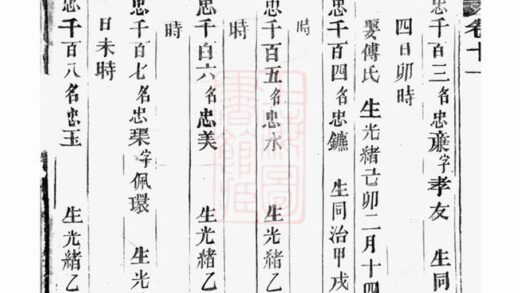 卷十一
忠千百三名忠䕒字孝友 生同
四日卯時
娶傅氏 生光緒己卯二月十四
忠千百四名忠鑣 生同治甲戌
時
忠千百五名忠水 生光緒乙
時
忠千百六名忠美 生光緒乙
時
忠千百七名忠琹字佩環 生光
日未時
忠千百八名忠玉 生光緒乙